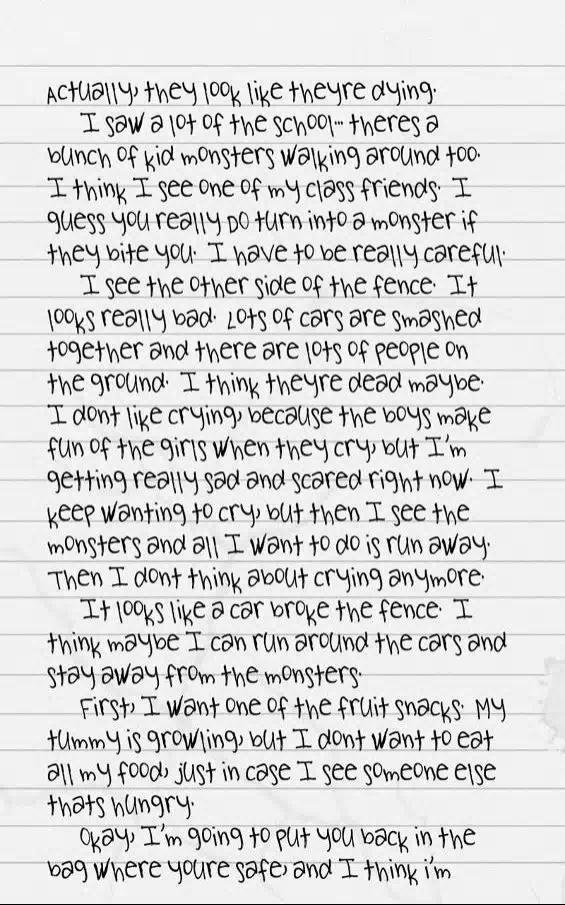 Actually, they look like theyre dying.
I saw a lot of the school... theres a
bunch of kid monsters walking around too.
I think I see one of my class friends. I
guess you really DO turn into a monster if
they bite you. I have to be really careful.
I see the other side of the fence. It
looks really bad. Lots of cars are smashed
together and there are lots of people on
the ground. I think theyre dead maybe.
I dont like crying, because the boys make
fun of the girls when they cry, but I'm
getting really sad and scared right now. I
keep wanting to cry, but then I see the
monsters and all I want to do is run away.
Then I dont think about crying anymore.
It looks like a car broke the fence. I
think maybe I can run around the cars and
stay away from the monsters.
First, I want one of the fruit snacks. My
tummy is growling, but I dont want to eat
all my food, just in case I see someone else
thats hungry.
Okay, I'm going to put you back in the
bag where youre safe, and I think i'm